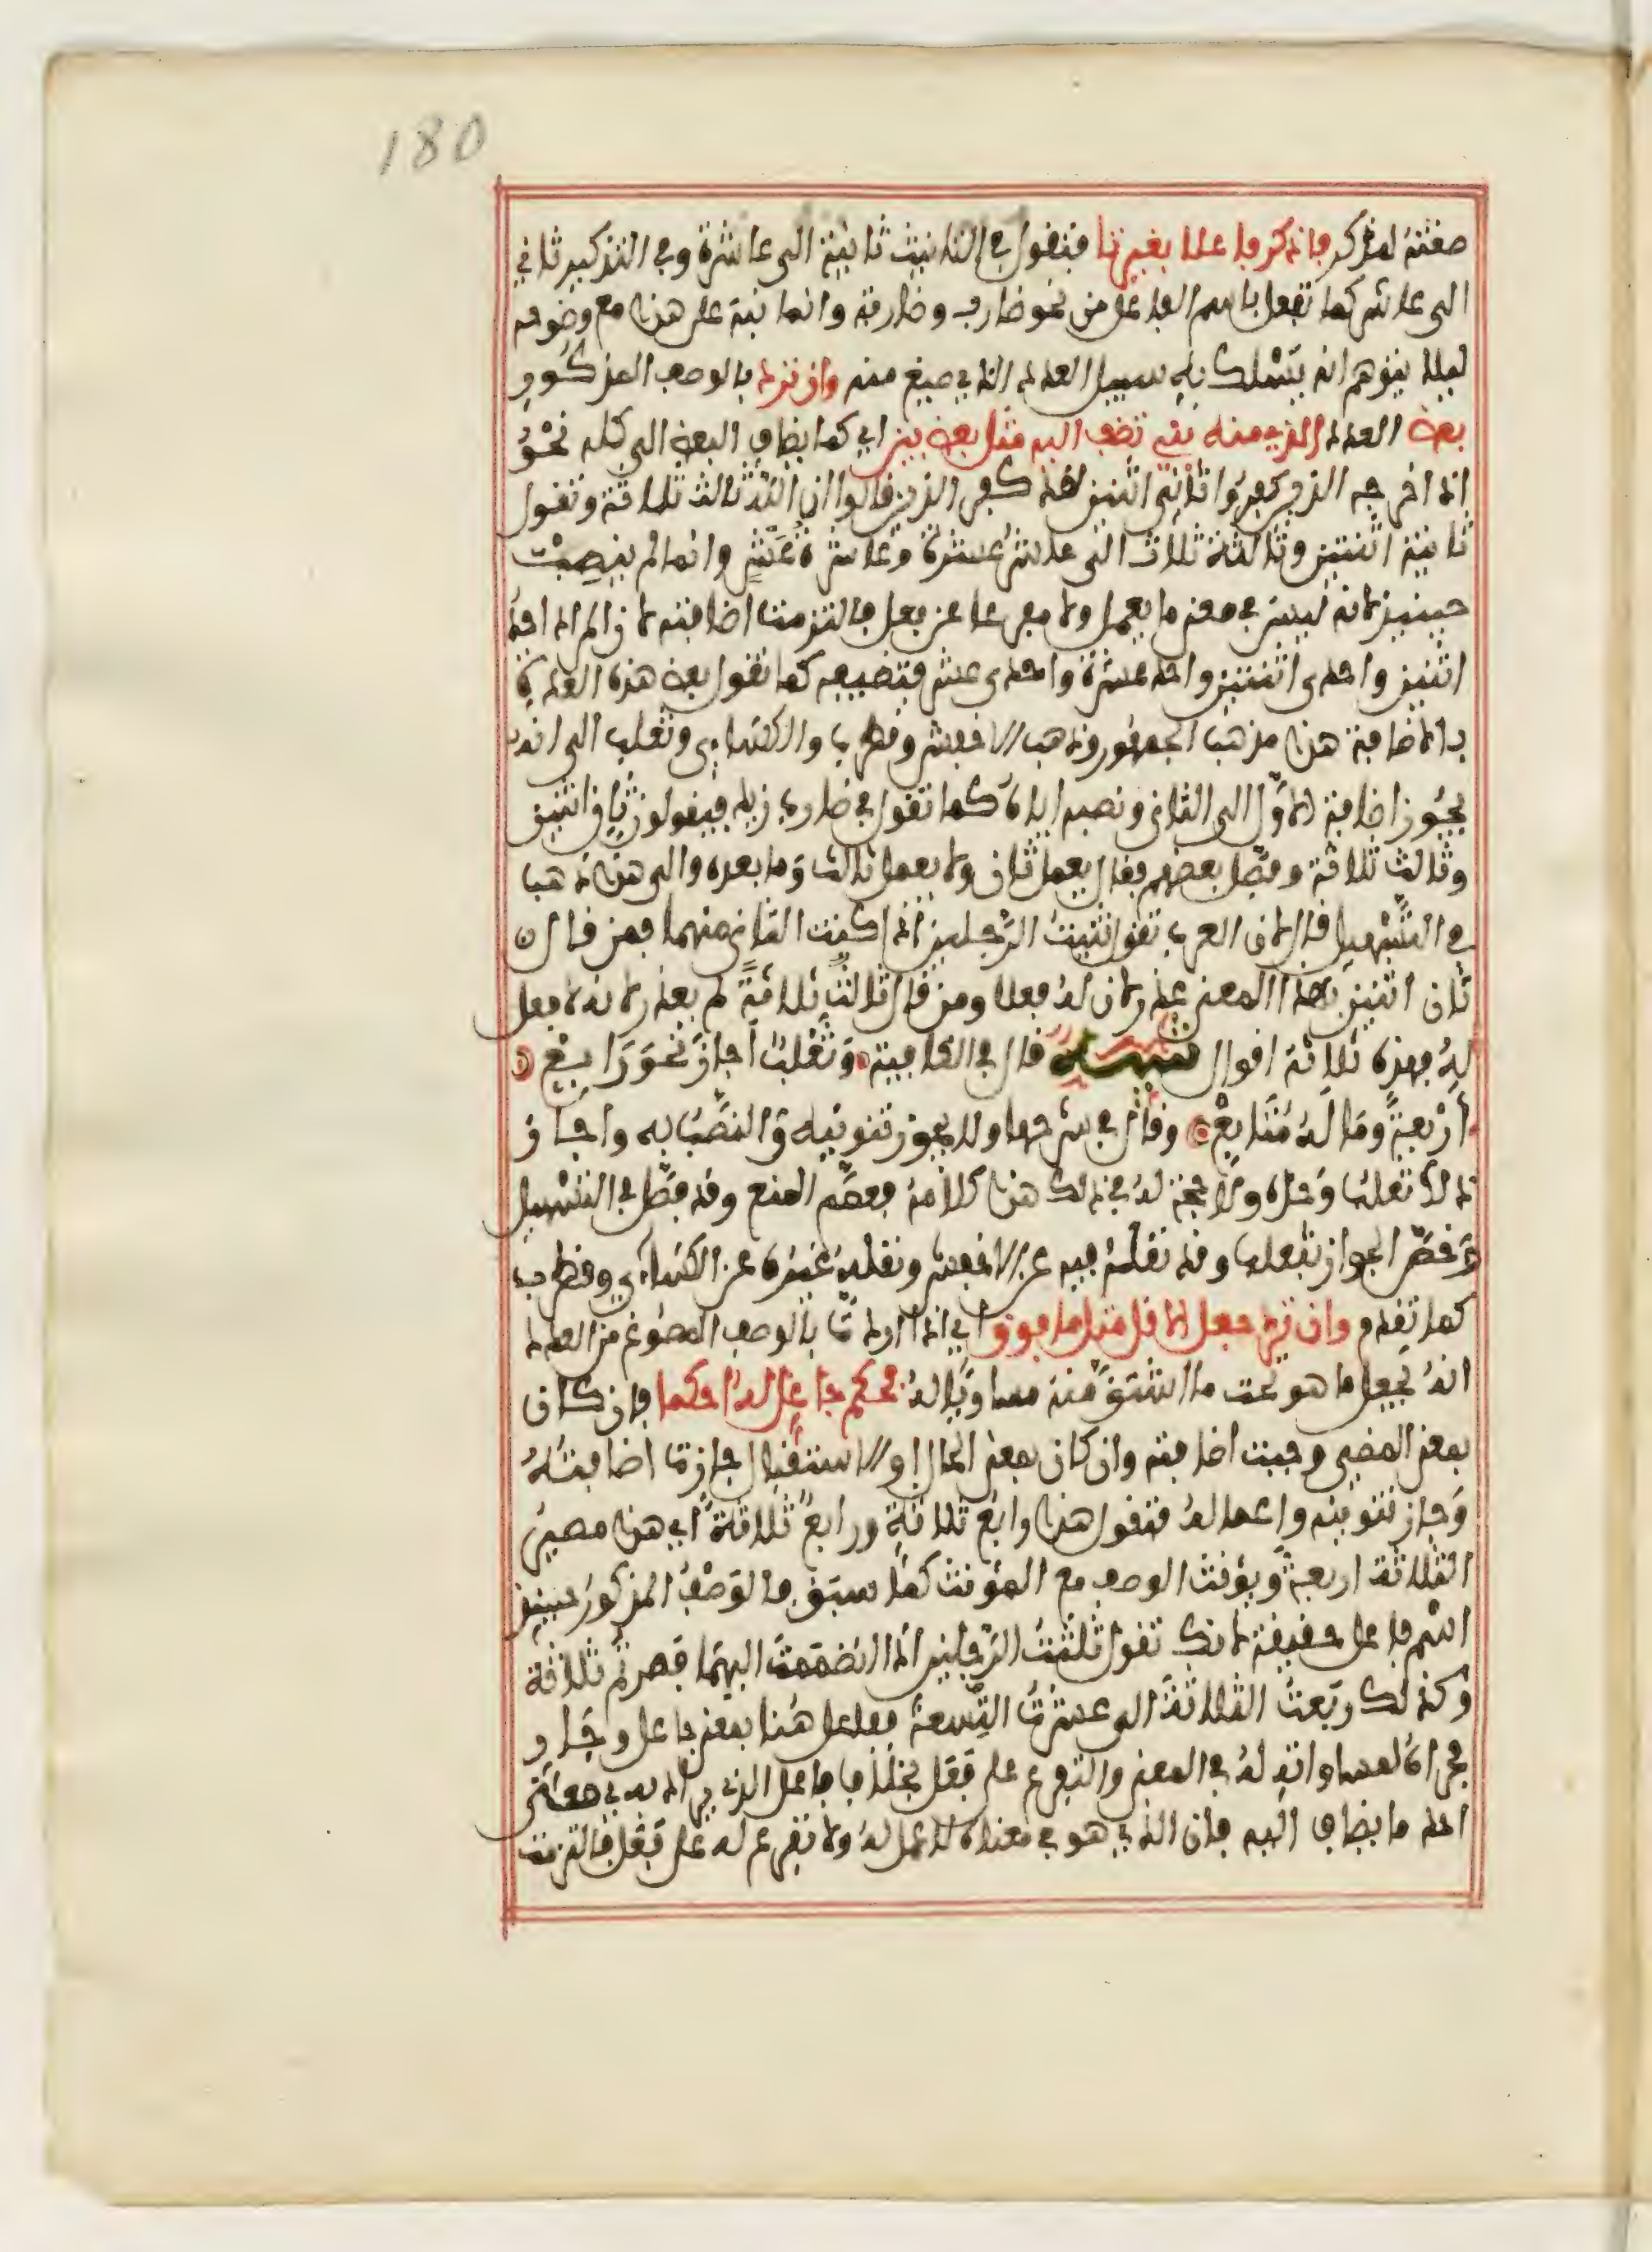 180
صغته لمذكر فاذكر فاعلا بغير تا فتقول في التانيث ثانية الى عاشرة وفي التذكير ثاني
الى عاشر كما تفعل باسم الفاعل من نحو ضارب وضاربة وانما نبه على هذا مع وضوحه
ليلا يتوهم انه يسلك به سبيل العدد الذي صيغ منه وان ترد بالوصف المذكور
بعض العدد الذي منه بني تضف اليه مثل بعض بين اي كما يضاف البعض الى كله نحو
اذ اخرجه الذين كفروا ثاني اثنين لقد كفر الذين قالوا ان الله ثالث ثلاثة وتقول
ثانية اثنتين وثالثة ثلاث الى عاشر عشرة وعاشرة عشر وانما لم ينصب
حينيذ لانه ليس في معنى ما يعمل ولا مفرعا عن فعل فالتزمت اضافته لان المراد احد
اثنين واحدى اثنتين واحد عشرة واحدى عشر فتضيفه كما تقول بعض هذه العدة
بالاضافة هذا مذهب الجمهور وذهب الاخفش وقطرب والكساءي وثعلب الى انه
يجوز اضافة الاول الى الثاني ونصبه اياه كما تقول في ضارب زيد فيقولون ثان اثنين
وثالث ثلاثة وفصل بعضهم فقال يعمل ثان ولا يعمل ثالث وما بعده والى هذا ذهب
في التسهيل قال لان العرب تقول ثنيت الرجلين اذا كنت الثاني منهما فمن قال
ثان اثنين بهذا المعنى عذر لان له فعلا ومن قال ثالث ثلاثة لم يعذر لانه لا فعل
له فهذه ثلاثة اقوال تنبيه قال في الكافية وثعلب اجاز نحو رابع
اربعة وما له متابع وقال في شرحها ولا يجوز تنوينه والنصب به واجاز
ذلك ثعلب وحده ولا حجة له في ذلك هذا كلامه فعمم المنع وقد فصل في التسهيل
وخص الجواز بثعلب وقد نقله فيه عن الاخفش ونقله غيره عن الكساءي وقطرب
كما تقدم وان ترد جعل الاقل مثل ما فوق اي اذا اردت بالوصف المصوغ من العدد
انه يجعل ما هو تحت ما اشتق منه مساويا له فحكم جاعل له احكما فان كان
بمعنى المضي وجبت اضافته وان كان بمعنى الحال او الاستقبال جازت اضافته
وجاز تنوينه واعماله فتقول هذا رابع ثلاثة ورابع ثلاثة اي هذا مصير
الثلاثة اربعة ويؤنث الوصف مع المؤنث كما سبق فالوصف المذكور حينيذ
اسم فاعل حقيقة لانك تقول ثلثت الرجلين اذا انضممت اليهما فصرتم ثلاثة
وكذلك ربعت الثلاثة الى عشرت التسعة ففاعل هنا بمعنى جاعل وجار
مجراه لمساواته له في المعنى والتفرع على فعل بخلاف فاعل الذي يراد به معنى
احد ما يضاف اليه فان الذي هو في معناه لا عمل له ولا تفرع له على فعل فالتزمت